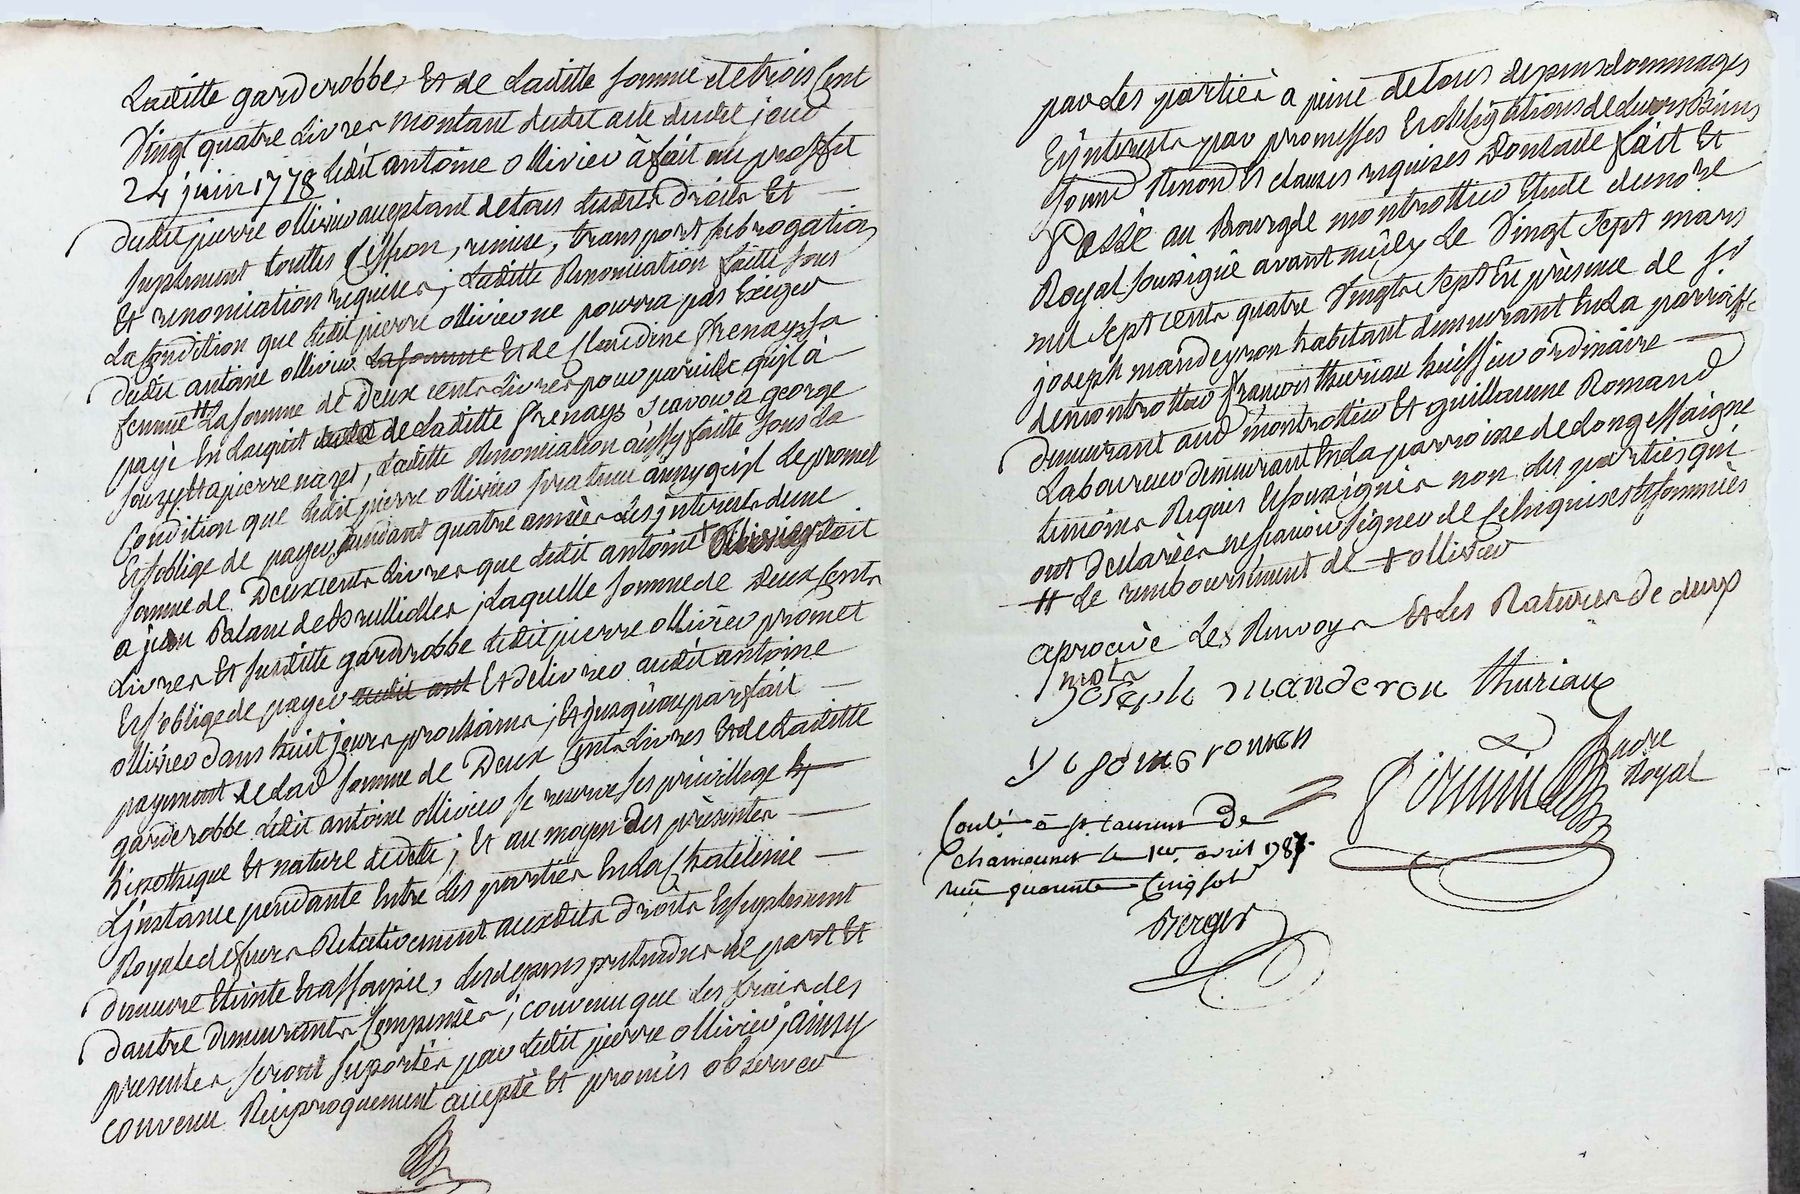 Laditte garderobbe, Et de Laditte somme de trois Cent
Vingt quatre Livres montant dudit acte dudit jour
24 juin 1778 ledit antoine ollivier à fait au proffit
dudit pierre ollivier acceptant de tous lesdits droits Et
suplement touttes Cession, remise, transport subrogation
Et renonciation requises; Laditte Renonciation faitte sous
La Condition que ledit pierre ollivier ne pourra pas Exiger
dudit antoine ollivier La somme Et de Claudine frenays sa
femme # La somme de Deux cents Livres pour pareille qu'il à
payé En Lacquit de Laditte frenays scavoir à george
souzy Et a pierre nazet, Laditte Renonciation aussy faitte sous La
Condition que ledit pierre ollivier sera tenu ainsy qu'il Le promet
Et soblige de payer pendant quatre années Les jnterests dune
somme de Deux cents Livres que ledit antoine + ollivier doit
a jean Palane de Brullioles; Laquelle somme de Deux Cents
Livres Et susditte garderobbe ledit pierre ollivier promet
Et soblige de payer audit ant Et delivrer audit antoine
ollivier dans huit jours prochains; Et jusqu'au parfait
payement de lad somme de Deux Cents Livres Et de Laditte
garderobbe Ledit antoine ollivier se reserve ses privillege hy
hipothèque Et nature de dette; Et au moyen des présentes
Linstance pendante Entre Les parties En La Chatelenie
Royale de feurs Relativement auxdits droits Et suplement
demeure Eteinte Et assoupie, les depens pretendus de part Et
dautre demeurants Compensés; convenu que les frais des
presentes seront suportés par ledit pierre ollivier; ainsy
convenu Reciproquement accepté Et promis observer
par les parties a peine de tous depens dommages
Et jnterests par promesses Et obligations de leurs Biens
soum Renon Et clauses requises Dont acte fait Et
Passé au Bourg de montrottier Etude du no.re
Royal soussigné avant midy Le Vingt Sept mars
mil Sept cents quatre Vingts Sept En présence de Sr
joseph mandeyron habitant demeurant En La parroisse
de montrottier françois thuriau huissier ordinaire
demeurant aud montrottier Et guillaume Romand
Laboureur demeurant En La parroisse de Longessaigne
temoins Requis Et soussignés non des parties qui
ont declarées ne scavoir signer de Ce Enquises Et sommées
# Le remboursement de + ollivier
aprouvé Les Renvoys Et Les Ratures de deux
mots
joseph manderon thuriau
g gome romen
no.re
Royal
Controlé à St Laurent De
Chamousset le 1er avril 1787.
recu quarente Cinq sols
Berger